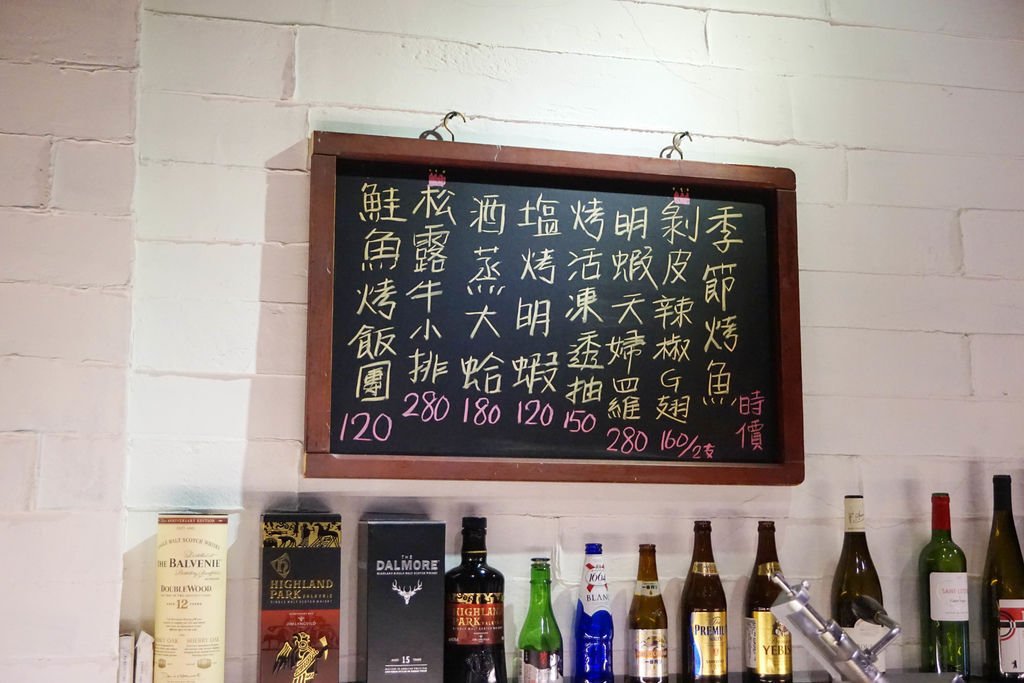 季節烤魚
時價
剝皮辣椒G翅
160/2支
明蝦天婦羅
280
烤活凍透抽
150
塩烤明蝦
120
酒蒸大蛤
180
松露牛小排
280
鮭魚烤飯團
120
THE BALVENIE
DOUBLEWOOD
12
HIGHLAND
PARK
VALKYRIE
THE
DALMORE
15
HIGHLAND
PARK
1664
BLANC
PREMIUM
YEBISU